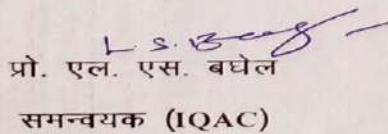 प्रो. एल. एस. बघेल
समन्वयक (IQAC)